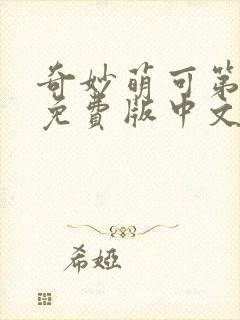 奇妙萌可第
免費版中文
希婭